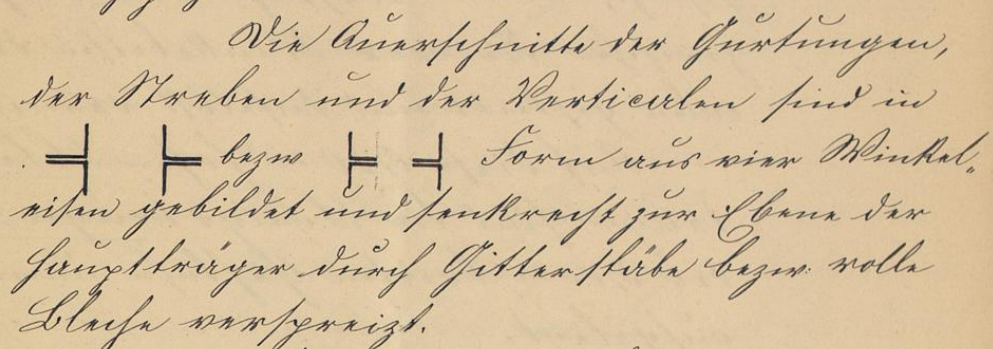 Die Querschnitte der Gurtungen,
der Streben und der Verticalen sind in
bezw Form aus vier Winkel„
eisen gebildet und senkrecht zur Ebene der
Hauptträger durch Gitterstäbe bezw. volle
Bleche verspreizt.